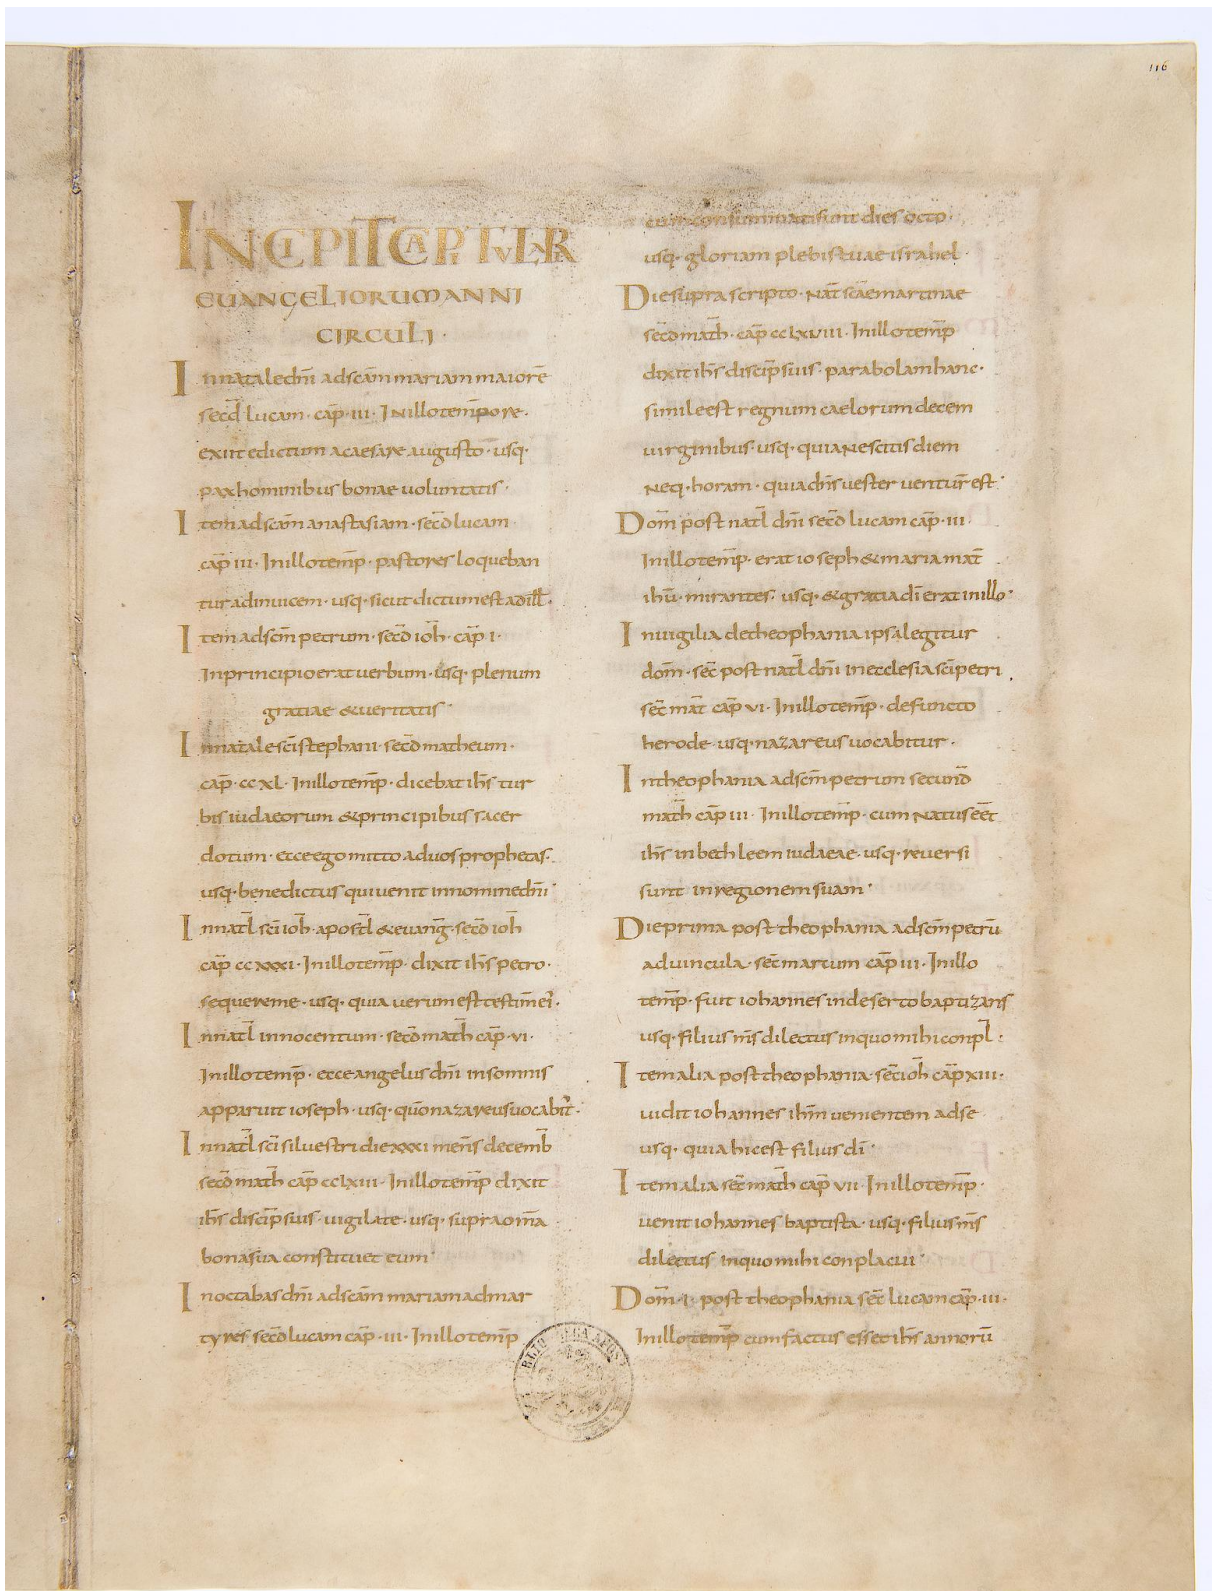 116
INCIPIT CAPITULARE
EUANGELIORUM ANNI
CIRCULI ·
In natale dn̄i ad scām mariam maiorē
secd̄ lucam · cap̄ · iii · In illo tem̄pore ·
exiit edictum a caesare augusto · usq·
pax hominibus bonae uoluntatis ·
Item ad scām anastasiam · secd̄ lucam
cap̄ iii · In illo tem̄p · pastores loqueban
tur adinuicem · usq· sicut dictum est ad ill̄ ·
Item ad scm̄ petrum · secd̄ ioh̄ · cap̄ i ·
In principio erat uerbum · usq· plenum
gratiae & ueritatis ·
In natale sc̄i stephani · secd̄ matheum ·
cap̄ · cc xl · In illo tem̄p · dicebat ih̄s tur
bis iudaeorum & principibus sacer
dotum · ecce ego mitto ad uos prophetas ·
usq· benedictus qui uenit in nomine dn̄i ·
In nat̄l sc̄i ioh̄ · apost̄l & euanḡ · secd̄ ioh̄
cap̄ cc xxxi · In illo tem̄p · dixit ih̄s petro ·
sequere me · usq· quia uerum est testim̄ ei ·
In nat̄l innocentum · secd̄ math̄ cap̄ · vi ·
In illo tem̄p · ecce angelus dn̄i in somnis
apparuit ioseph · usq· qūo nazareus uocabit̄ ·
In nat̄l sc̄i siluestri die xxxi men̄s decemb̄
secd̄ math̄ cap̄ cc lxiii · In illo tem̄p dixit
ih̄s discip̄ suis · uigilate · usq· supra om̄a
bona sua constituet eum ·
In octabas dn̄i ad scām mariam ad mar
tyres secd̄ lucam cap̄ · iii · In illo tem̄p
cum consummati sunt dies octo ·
usq· gloriam plebis tuae israhel ·
Die supra scripto · nat̄ scāe martinae
secd̄ math̄ · cap̄ cc lxviii · In illo tem̄p
dixit ih̄s discip̄ suis · parabolam hanc ·
simile est regnum caelorum decem
uirginibus · usq· quia nescitis diem
neq· horam · quia dn̄s uester uentur̄ est ·
Dom̄ post nat̄l dn̄i secd̄ lucam cap̄ · iii ·
In illo tem̄p · erat ioseph & maria mat̄
ihū · mirantes · usq· & gratia dī erat in illo ·
In uigilia de theophania ipsa legitur
dom̄ · sec̄ post nat̄l dn̄i in ecclesia sc̄i petri
sec̄ mat̄ cap̄ vi · In illo tem̄p · defuncto
herode · usq· nazareus uocabitur ·
In theophania ad scm̄ petrum secund̄
math̄ cap̄ iii · In illo tem̄p · cum natus eēt
ih̄s in bethleem iudaeae · usq· reuersi
sunt in regionem suam ·
Die prima post theophania ad scm̄ petrū
ad uincula · sec̄ marcum cap̄ iii · In illo
tem̄p · fuit iohannes in deserto baptizans
usq· filius m̄s dilectus in quo mihi conpl̄ ·
Item alia post theophania · sec̄ ioh̄ cap̄ xiii ·
uidit iohannes ihm̄ uenientem ad se
usq· quia hic est filius dī ·
Item alia sec̄ math̄ cap̄ vii · In illo tem̄p ·
uenit iohannes baptista · usq· filius m̄s
dilectus in quo mihi conplacui ·
Dom̄ · i · post theophania sec̄ lucam cap̄ · iii ·
In illo tem̄p cum factus esset ih̄s annorū